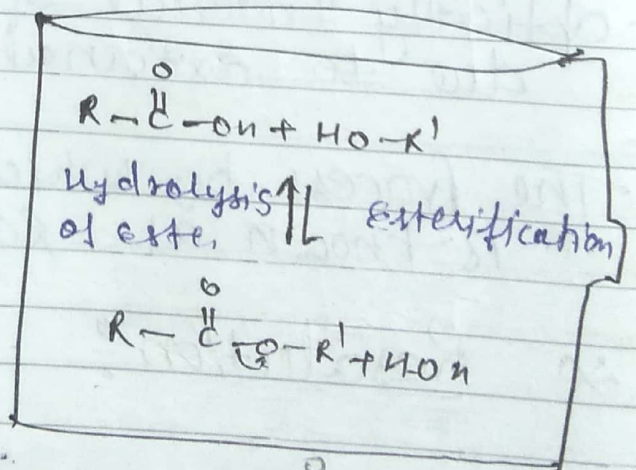 O
||
R - C - OH + HO - R'
Hydrolysis
of este. ⇅ Esterification
O
||
R - C - O - R' + HOH